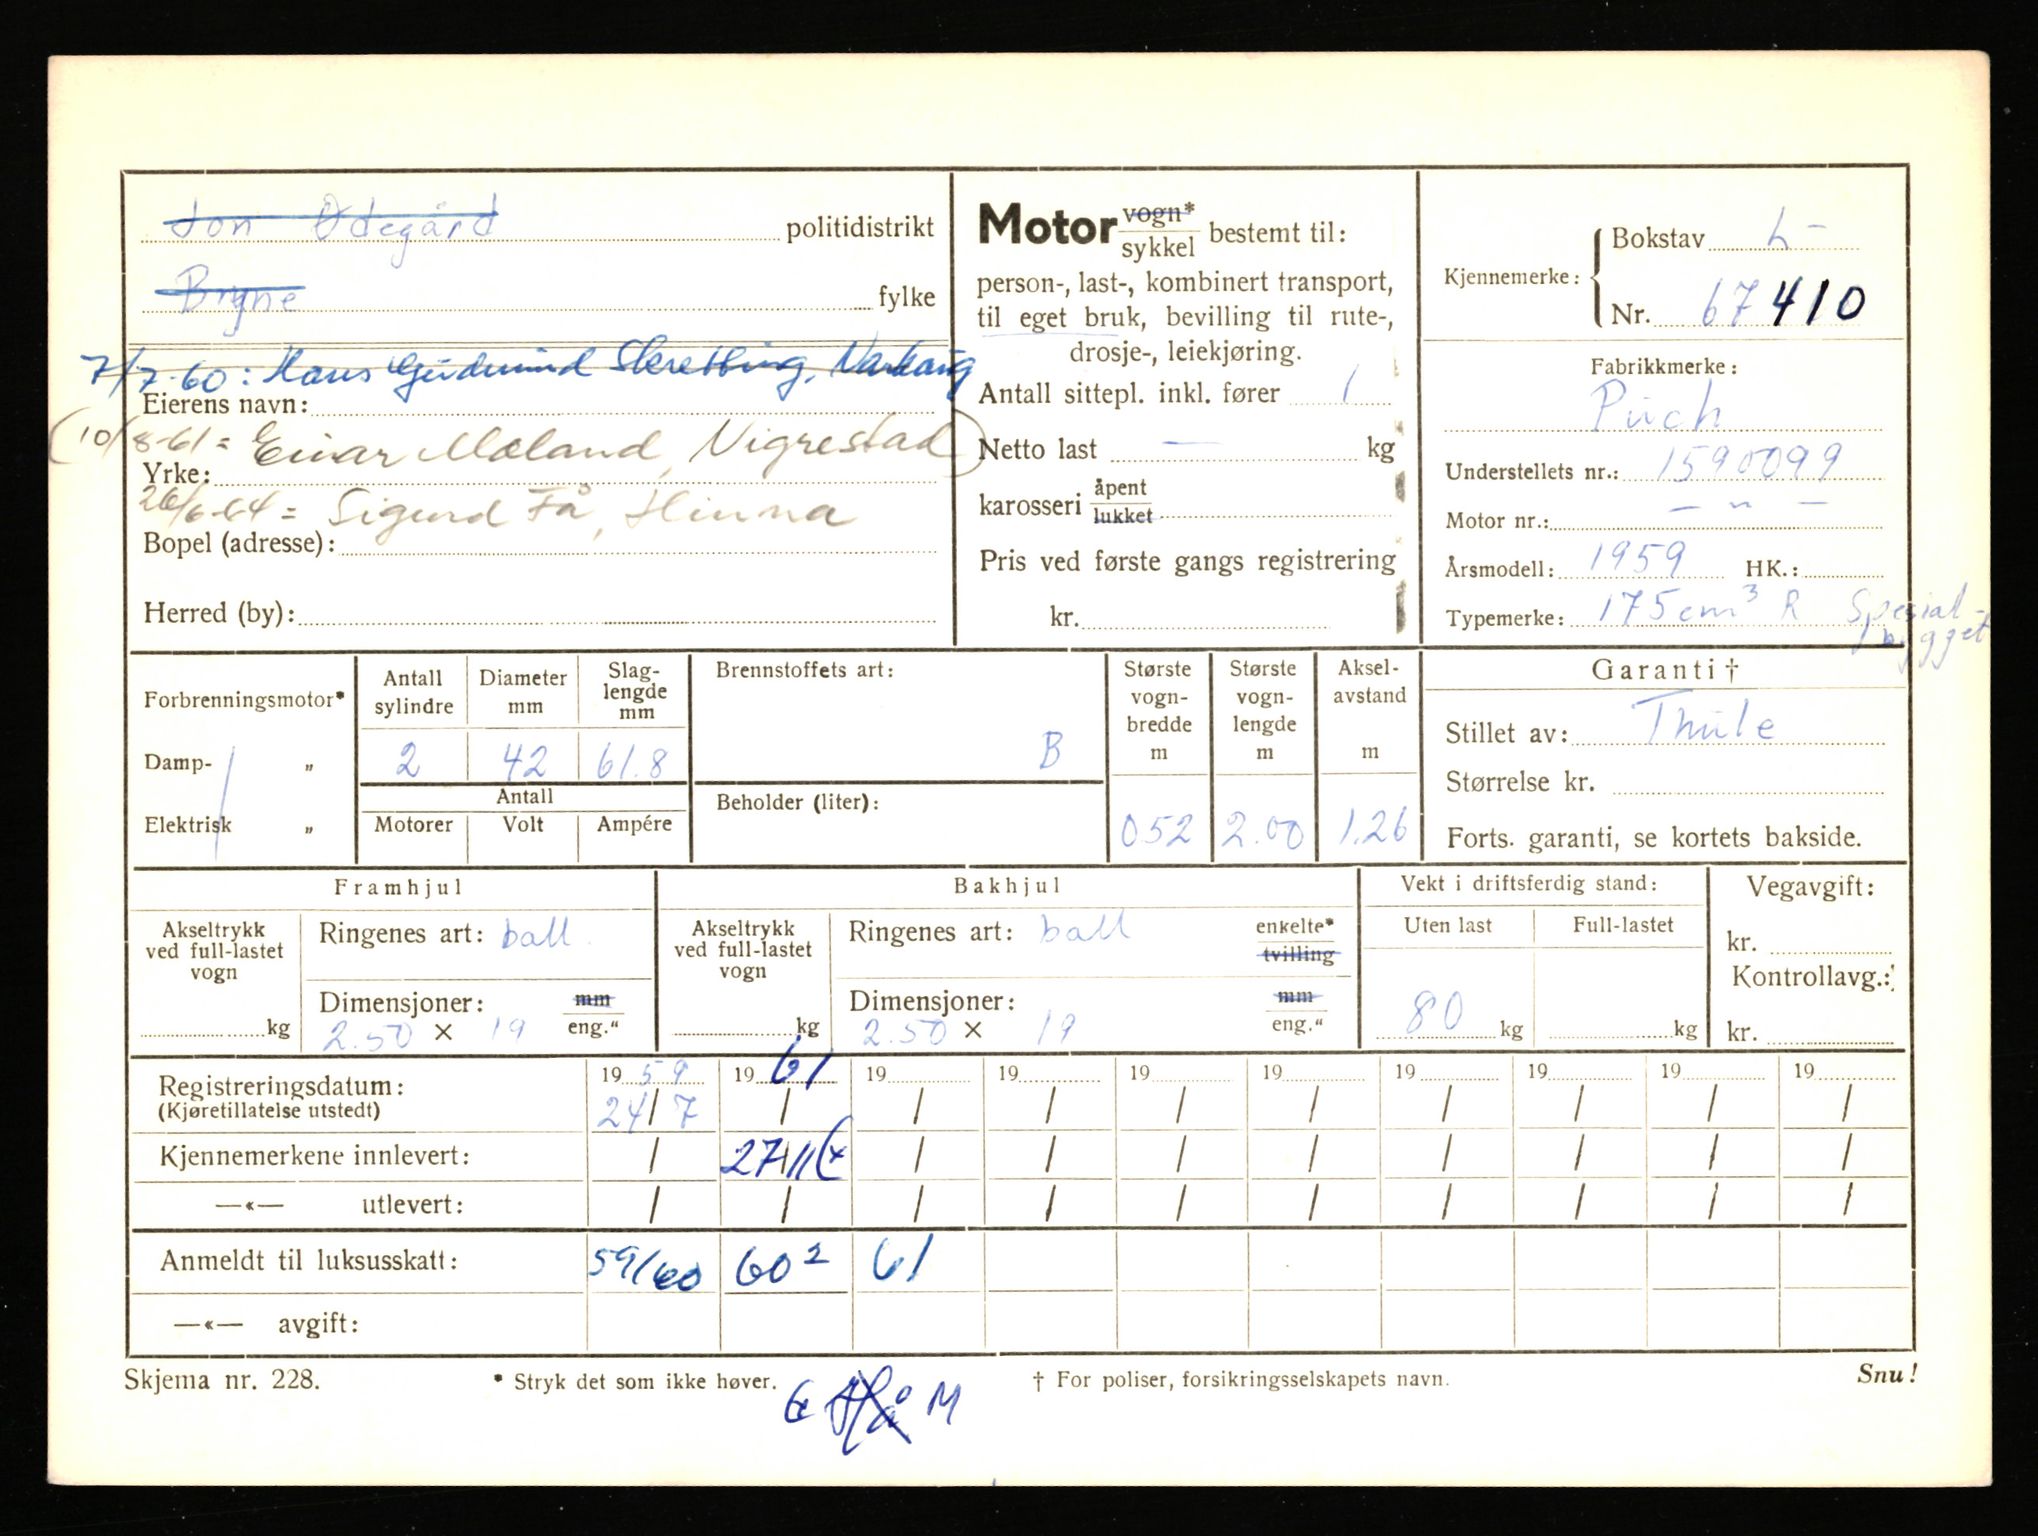 Jon Ødegård politidistrikt
Bryne fylke
7/7-60: Hans Gudmund Skretting, Varhaug
Eierens navn:
(10/8-61 = Einar Mæland, Vigrestad)
Yrke:
26/6-64 = Sigurd Få, Hinna
Bopel (adresse):
Herred (by):
Motor vogn*
sykkel bestemt til:
person-, last-, kombinert transport,
til eget bruk, bevilling til rute-,
drosje-, leiekjøring.
Antall sittepl. inkl. fører 1
Netto last — kg
karosseri åpent
lukket
Pris ved første gangs registrering
kr.
Kjennemerke:
Bokstav L-
Nr. 67410
Fabrikkmerke:
Puch
Understellets nr.: 1590099
Motor nr.: — " —
Årsmodell: 1959 HK.:
Typemerke: 175 cm³ R Spesial-
bygget
Forbrenningsmotor*
Damp- „
Elektrisk „
Antall sylindre
Diameter mm
Slag-lengde mm
2 42 61.8
Antall
Motorer Volt Ampére
Brennstoffets art:
B
Beholder (liter):
Største vogn-bredde m
Største vogn-lengde m
Aksel-avstand m
052 2.00 1.26
Garanti †
Stillet av: Thule
Størrelse kr.
Forts. garanti, se kortets bakside.
Framhjul
Akseltrykk
ved full-lastet
vogn
kg
Ringenes art: ball.
Dimensjoner: mm
2.50 × 19 eng."
Bakhjul
Akseltrykk
ved full-lastet
vogn
kg
Ringenes art: ball enkelte*
tvilling
Dimensjoner: mm
2.50 × 19 eng."
Vekt i driftsferdig stand:
Uten last Full-lastet
80 kg kg
Vegavgift:
kr.
Kontrollavg.:
kr.
Registreringsdatum: 19 59 19 61 19 19 19 19 19 19 19 19
(Kjøretillatelse utstedt) 24/7 / / / / / / / / /
Kjennemerkene innlevert: / 27/11 (x / / / / / / / /
—«— utlevert: / / / / / / / / / /
Anmeldt til luksusskatt: 59/60 60² 61
—«— avgift:
Skjema nr. 228. * Stryk det som ikke høver. † For poliser, forsikringsselskapets navn. Snu!
G Hå M